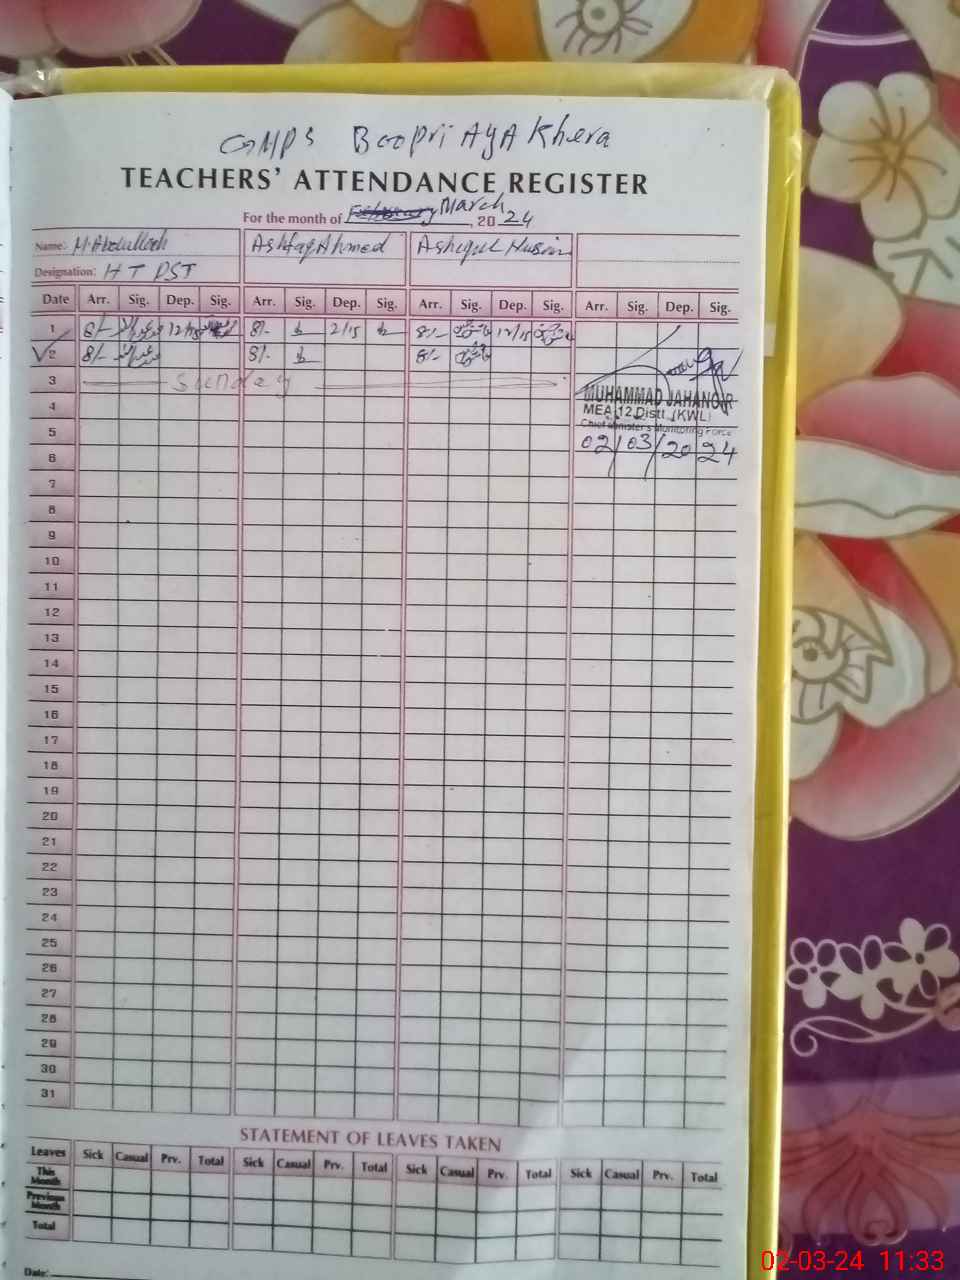 GMPS Boopri AyA Khera
TEACHERS' ATTENDANCE REGISTER
For the month of March, 2024
Name: M Abdullah Ashfaq Ahmed Ashiqul Husain
Designation: HT PST
Date Arr. Sig. Dep. Sig. Arr. Sig. Dep. Sig. Arr. Sig. Dep. Sig. Arr. Sig. Dep. Sig.
1 8/- 12/15 8/- 2/15 8/- 12/15
2 8/- 8/- 8/-
3 Sunday
MUHAMMAD JAHANGIR
4
MEA-12 Distt. (KWL)
5
Chief Minister's Monitoring Force
02/03/2024
6
7
8
9
10
11
12
13
14
15
16
17
18
19
20
21
22
23
24
25
26
27
28
29
30
31
STATEMENT OF LEAVES TAKEN
Leaves Sick Casual Prv. Total Sick Casual Prv. Total Sick Casual Prv. Total Sick Casual Prv. Total
This Month
Previous Month
Total
Date:
02-03-24 11:33